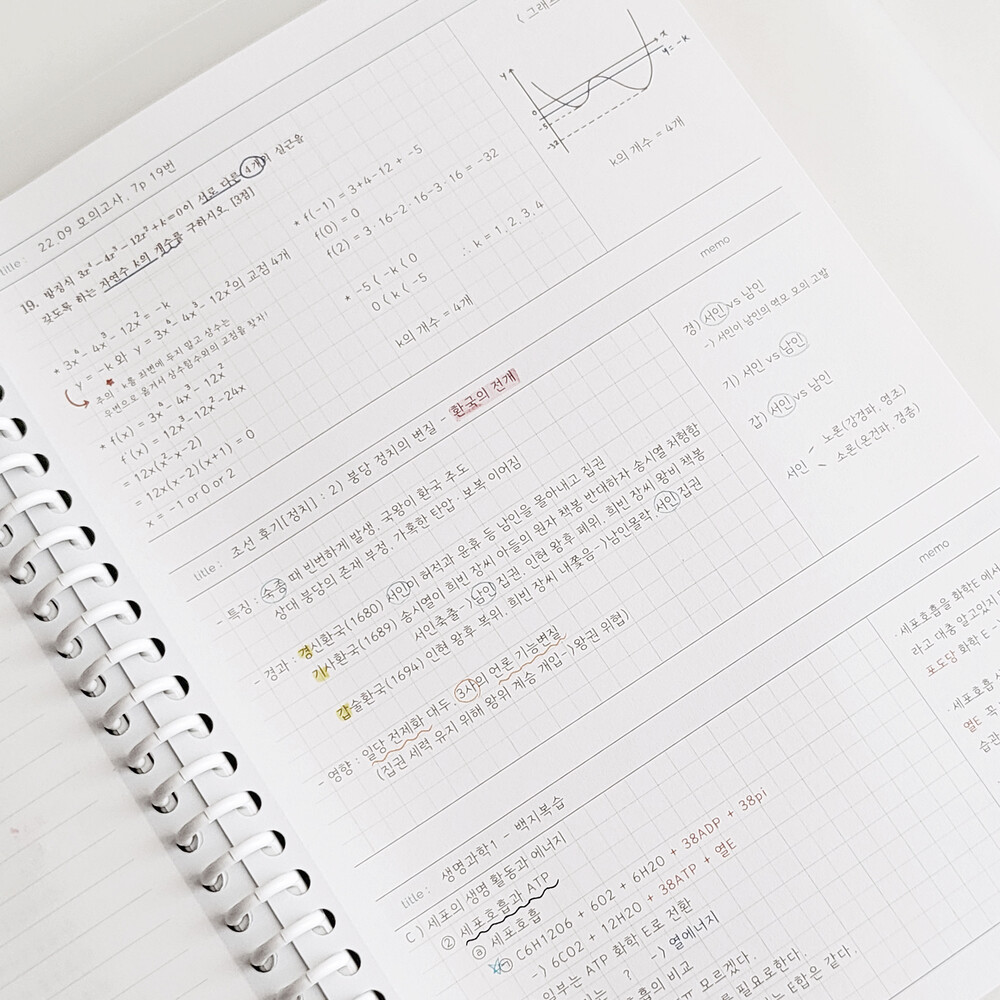 title : 22.09 모의고사. 7p 19번
19. 방정식 3x⁴-4x³-12x²+k=0이 서로 다른 4개의 실근을
갖도록 하는 자연수 k의 개수를 구하시오. [3점]
* 3x⁴-4x³-12x² = -k
y = -k 와 y = 3x⁴-4x³-12x²의 교점 4개
주의 k를 좌변에 두지 말고 상수는
우변으로 옮겨서 상수함수와의 교점을 찾자!
* f(x) = 3x⁴-4x³-12x²
f'(x) = 12x³-12x²-24x
= 12x(x²-x-2)
= 12x(x-2)(x+1) = 0
x = -1 or 0 or 2
* f(-1) = 3+4-12 = -5
f(0) = 0
f(2) = 3·16-2·16-3·16 = -32
* -5 < -k < 0
0 < k < -5
∴ k = 1, 2, 3, 4
k의 개수 = 4개
y
x
y=-k
0
-5
k의 개수 = 4개
title : 조선 후기[정치] : 2) 붕당 정치의 변질 - 환국의 전개
- 특징 : 숙종 때 빈번하게 발생. 국왕이 환국 주도
상대 붕당의 존재 부정, 가혹한 탄압·보복 이어짐
- 경과 : 경신환국(1680) 서인이 허적과 윤휴 등 남인을 몰아내고 집권
기사환국(1689) 송시열이 희빈 장씨 아들의 원자 책봉 반대하자 송시열 처형함
서인축출->남인 집권. 인현 왕후 폐위, 희빈 장씨 왕비 책봉
갑술환국(1694) 인현 왕후 복위, 희빈 장씨 내쫓음->남인몰락, 서인집권
- 영향 : 일당 전제화 대두, 3사의 언론 기능변질
(집권 세력 유지 위해 왕위 계승 개입->왕권 위협)
memo
경) 서인 vs 남인
-) 서인이 남인의 역모 모의 고발
기) 서인 vs 남인
갑) 서인 vs 남인
서인
노론(강경파, 영조)
소론(온건파, 경종)
title : 생명과학1 - 백지복습
C) 세포의 생명 활동과 에너지
② 세포호흡과 ATP
ⓐ 세포호흡
C6H12O6 + 6O2 + 6H2O + 38ADP + 38pi
-) 6CO2 + 12H2O + 38ATP + 열E
일부는 ATP 화학 E로 전환
? -) 열에너지
호흡의 비교
모르겠다.
를 필요로한다.
는 E합은 같다.
memo
· 세포호흡을 화학E 에서
라고 대충 알고있지
포도당 화학E -
· 세포호흡 시
열E 꼭
습관